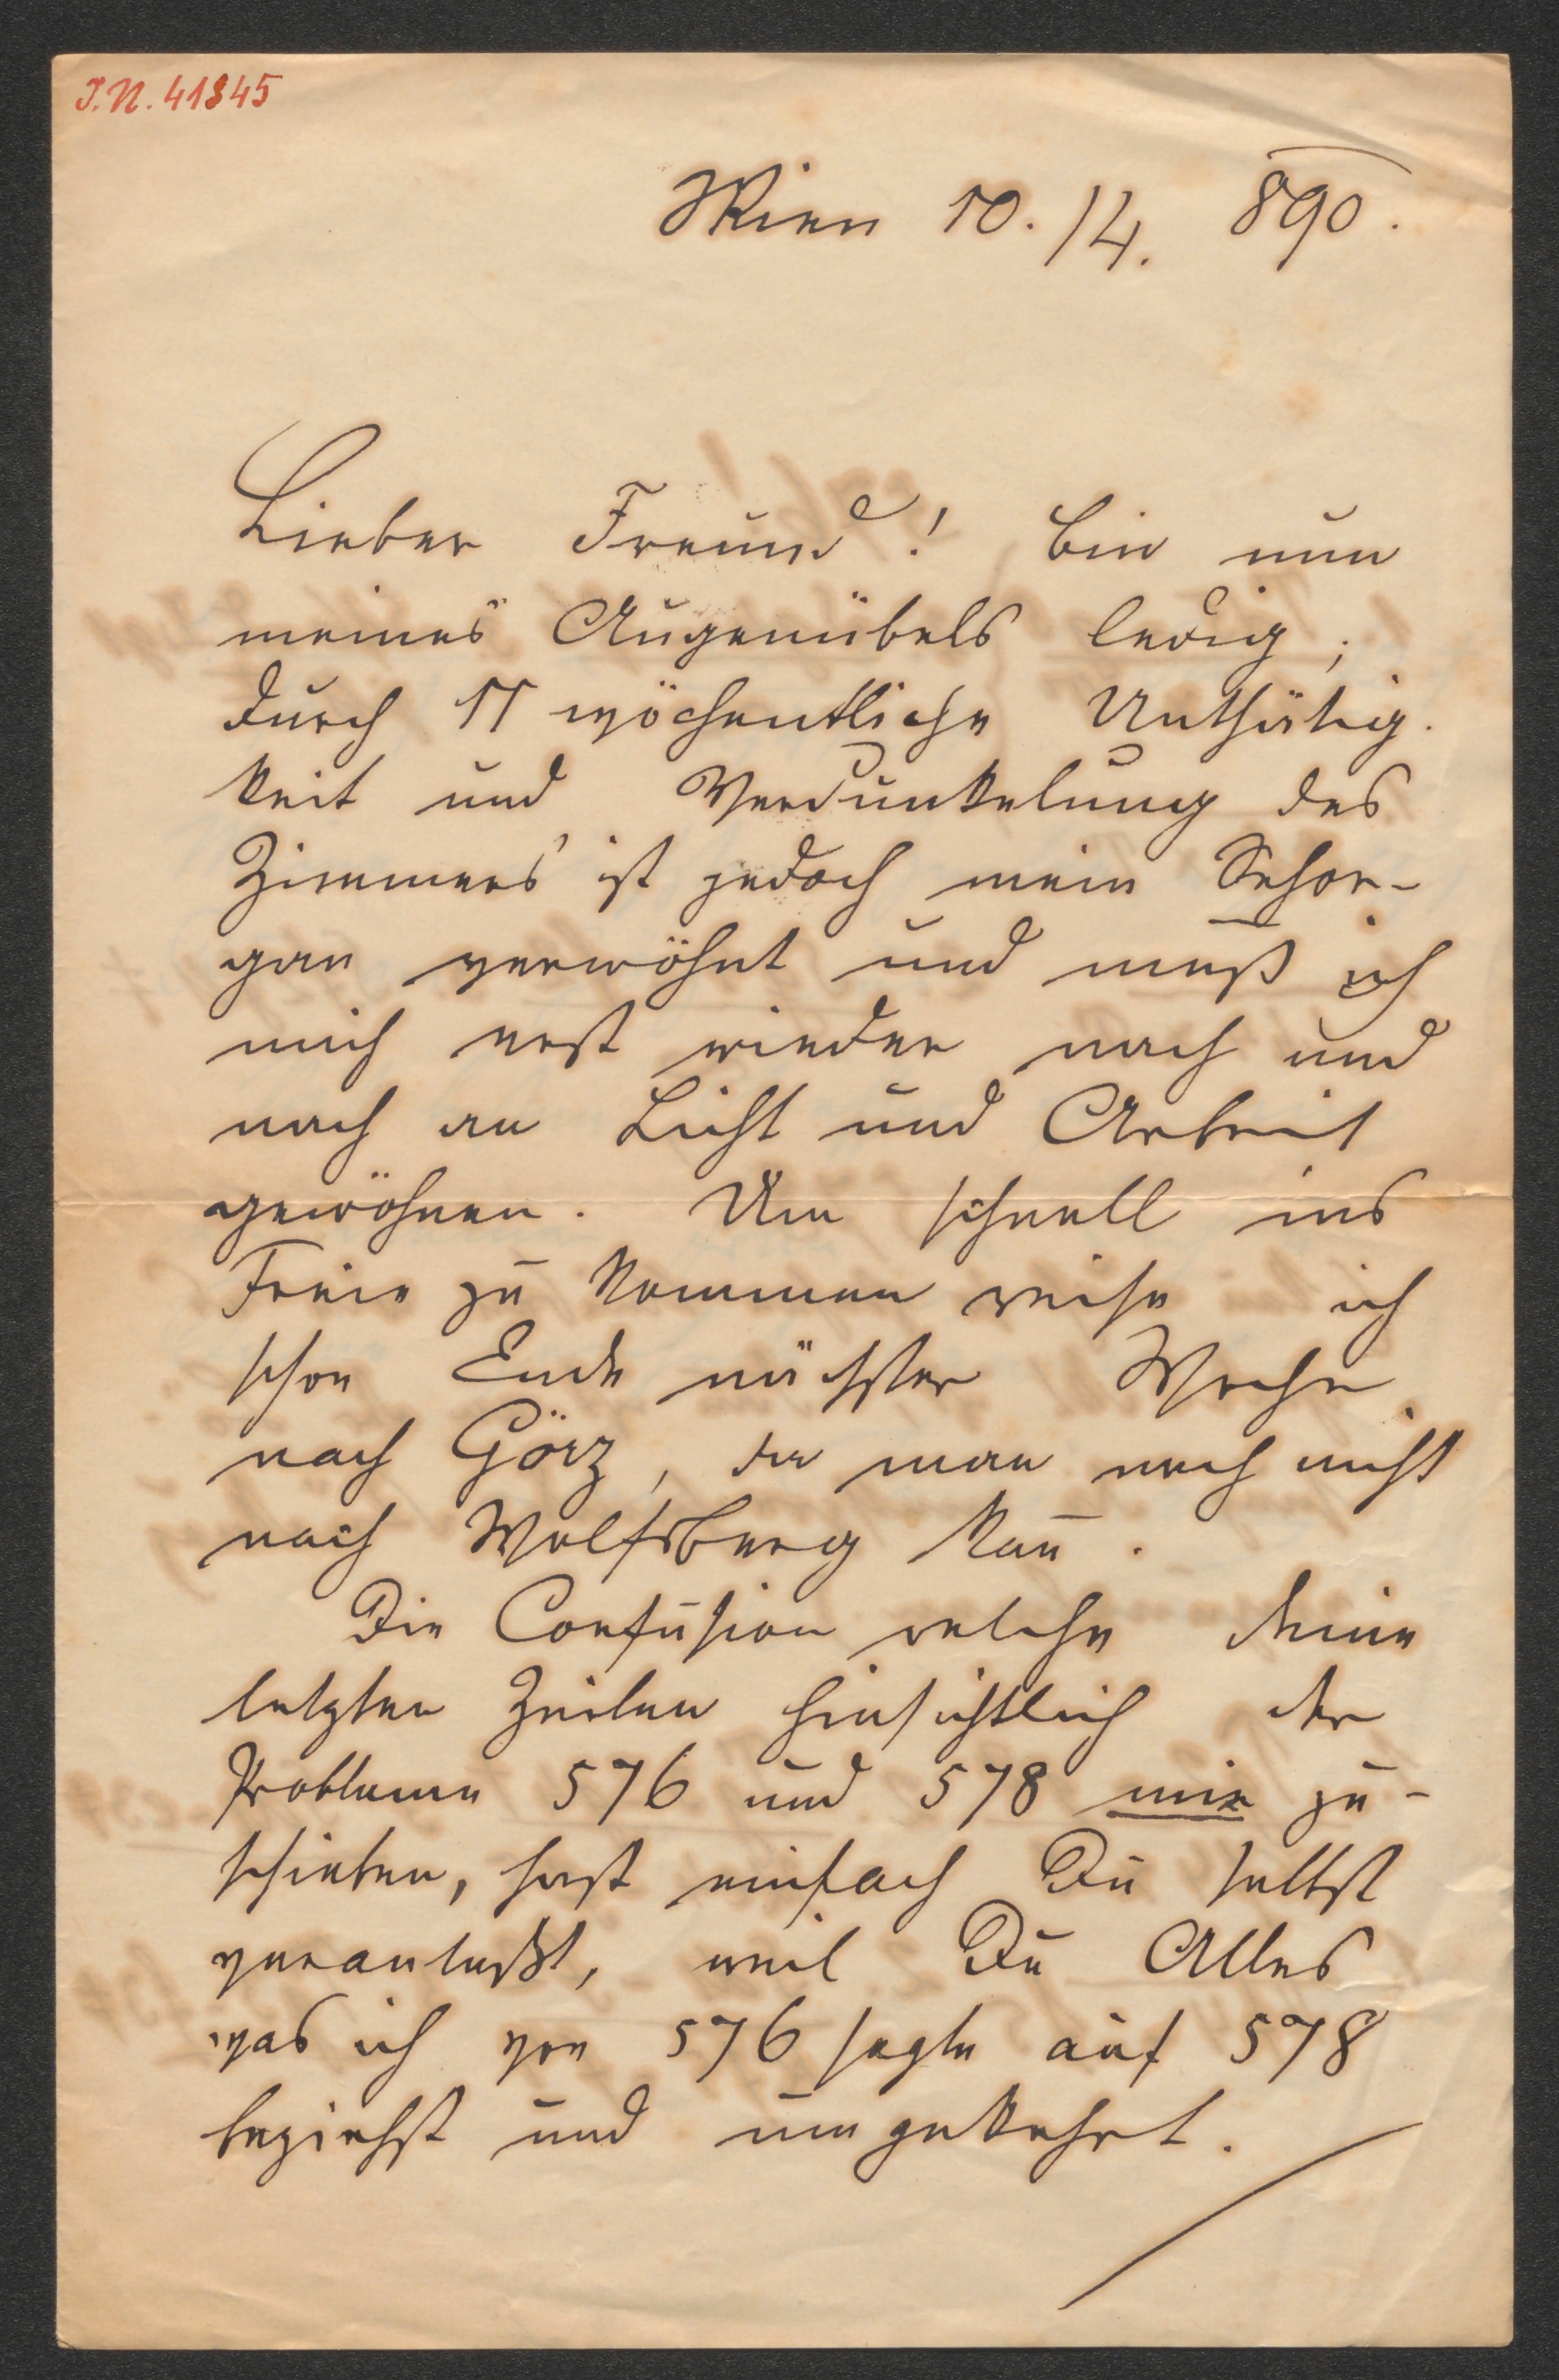 I.N. 41345
Wien 10./4. 890.
Lieber Freund! Bin nun
meines Augenübels ledig;
durch 11 wöchentliche Unthätig-
keit und Verdunkelung des
Zimmers ist jedoch mein Sehor-
gan verwöhnt und muß ich
mich erst wieder nach und
nach an Licht und Arbeit
gewöhnen. Um schnell ins
Freie zu kommen reise ich
schon Ende nächster Woche
nach Görz, da man noch nicht
nach Wolfsberg kan̄.
Die Confusion welche Deine
letzten Zeilen hinsichtlich der
Probleme 576 und 578 mir zu-
schieben, hast einfach Du selbst
veranlaßt, weil Du Alles
was ich von 576 sagte auf 578
beziehst und umgekehrt.